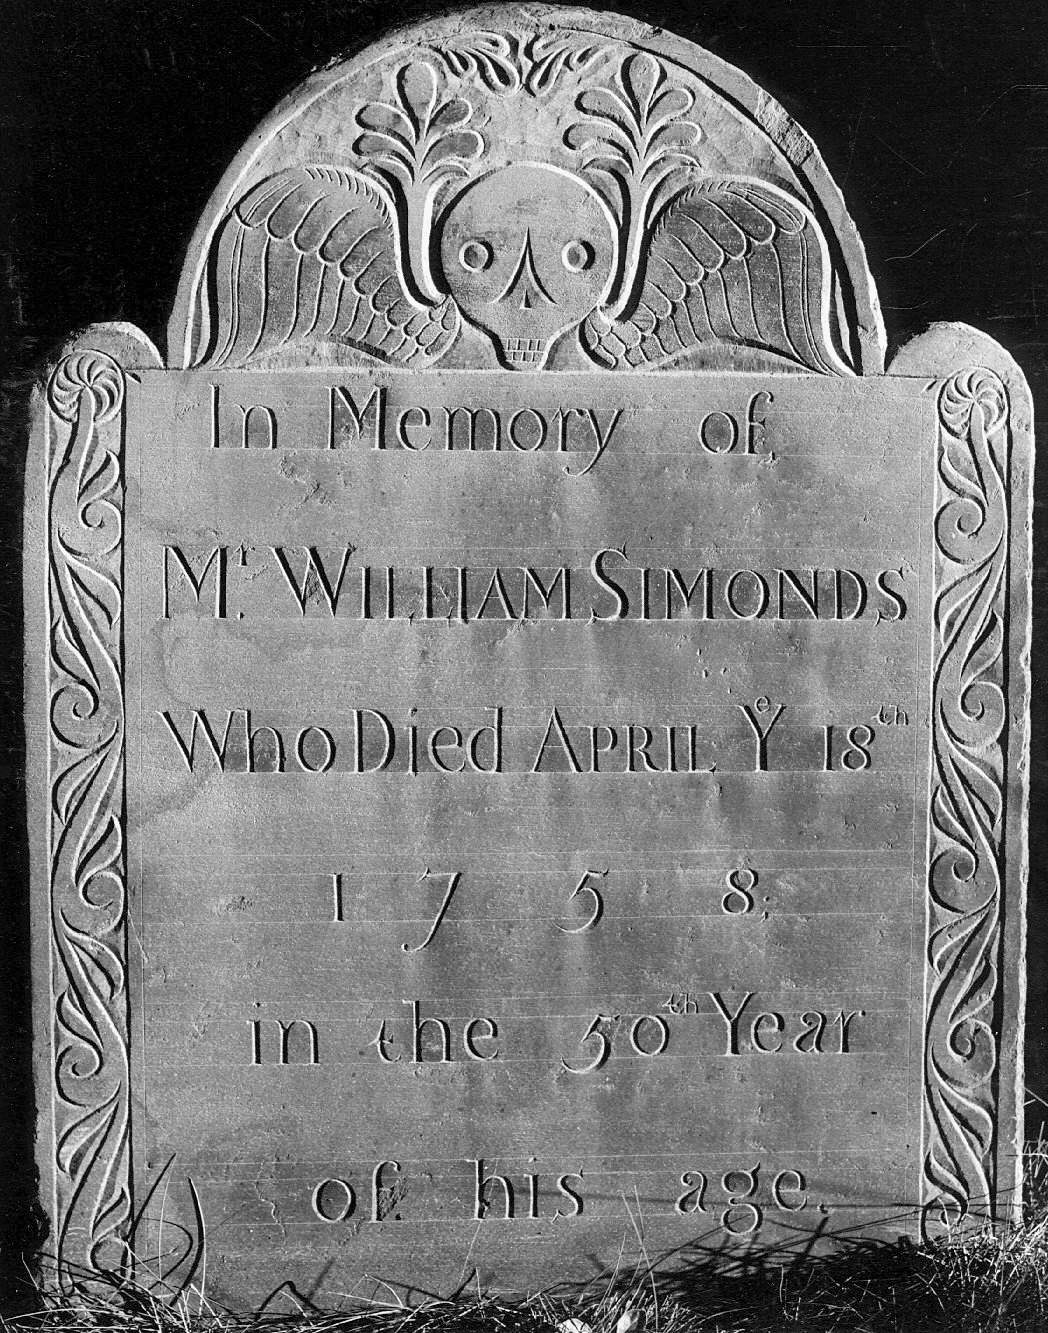 In Memory of
Mʳ. WILLIAM SIMONDS
Who Died APRIL Yᵉ 18ᵗʰ
1 7 5 8.
in the 50ᵗʰ Year
of his age.